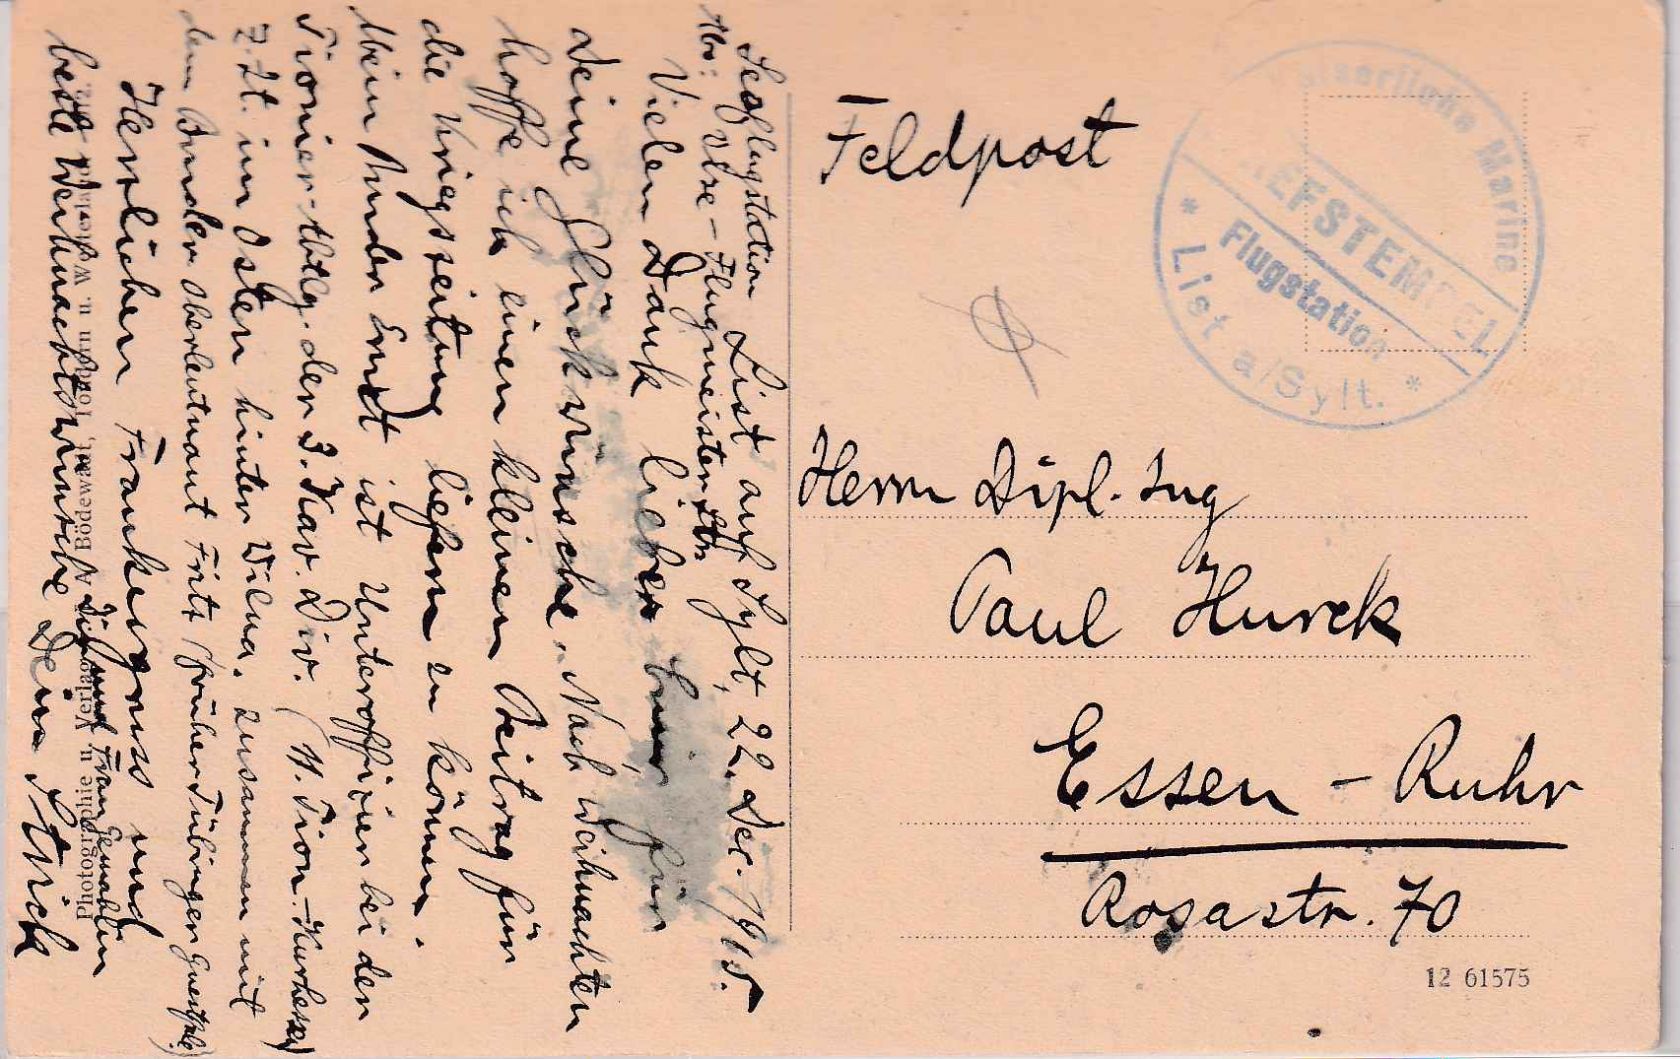 Seeflugstation List auf Sylt, 22. Dec. 1915.
Abs:
Vielen Dank lieber für
Deine Glückwünsche. Nach Weihnachten
hoffe ich einen kleinen Beitrag für
die Kriegszeitung liefern zu können.
Mein Bruder Ernst ist Unteroffizier bei der
Pionier-Abtlg. der 3. Kav. Div. (
z. Zt. im Osten hinter Wilna. zusammen mit
dem Bundesbr. Oberleutnant Fritz (früher Tübinger
Herzlichen Frankengruss und
beste Weihnachtswünsche Dein Strick
und Frau Gemahlin
Photographie u. Verlag v. A. Bödewadt, Tondern u. Westerland
Feldpost
Kaiserliche Marine
BRIEFSTEMPEL
Flugstation
* List a/Sylt. *
Herrn Dipl. Ing
Paul Hurck
Essen - Ruhr
Rosastr. 70
12 61575